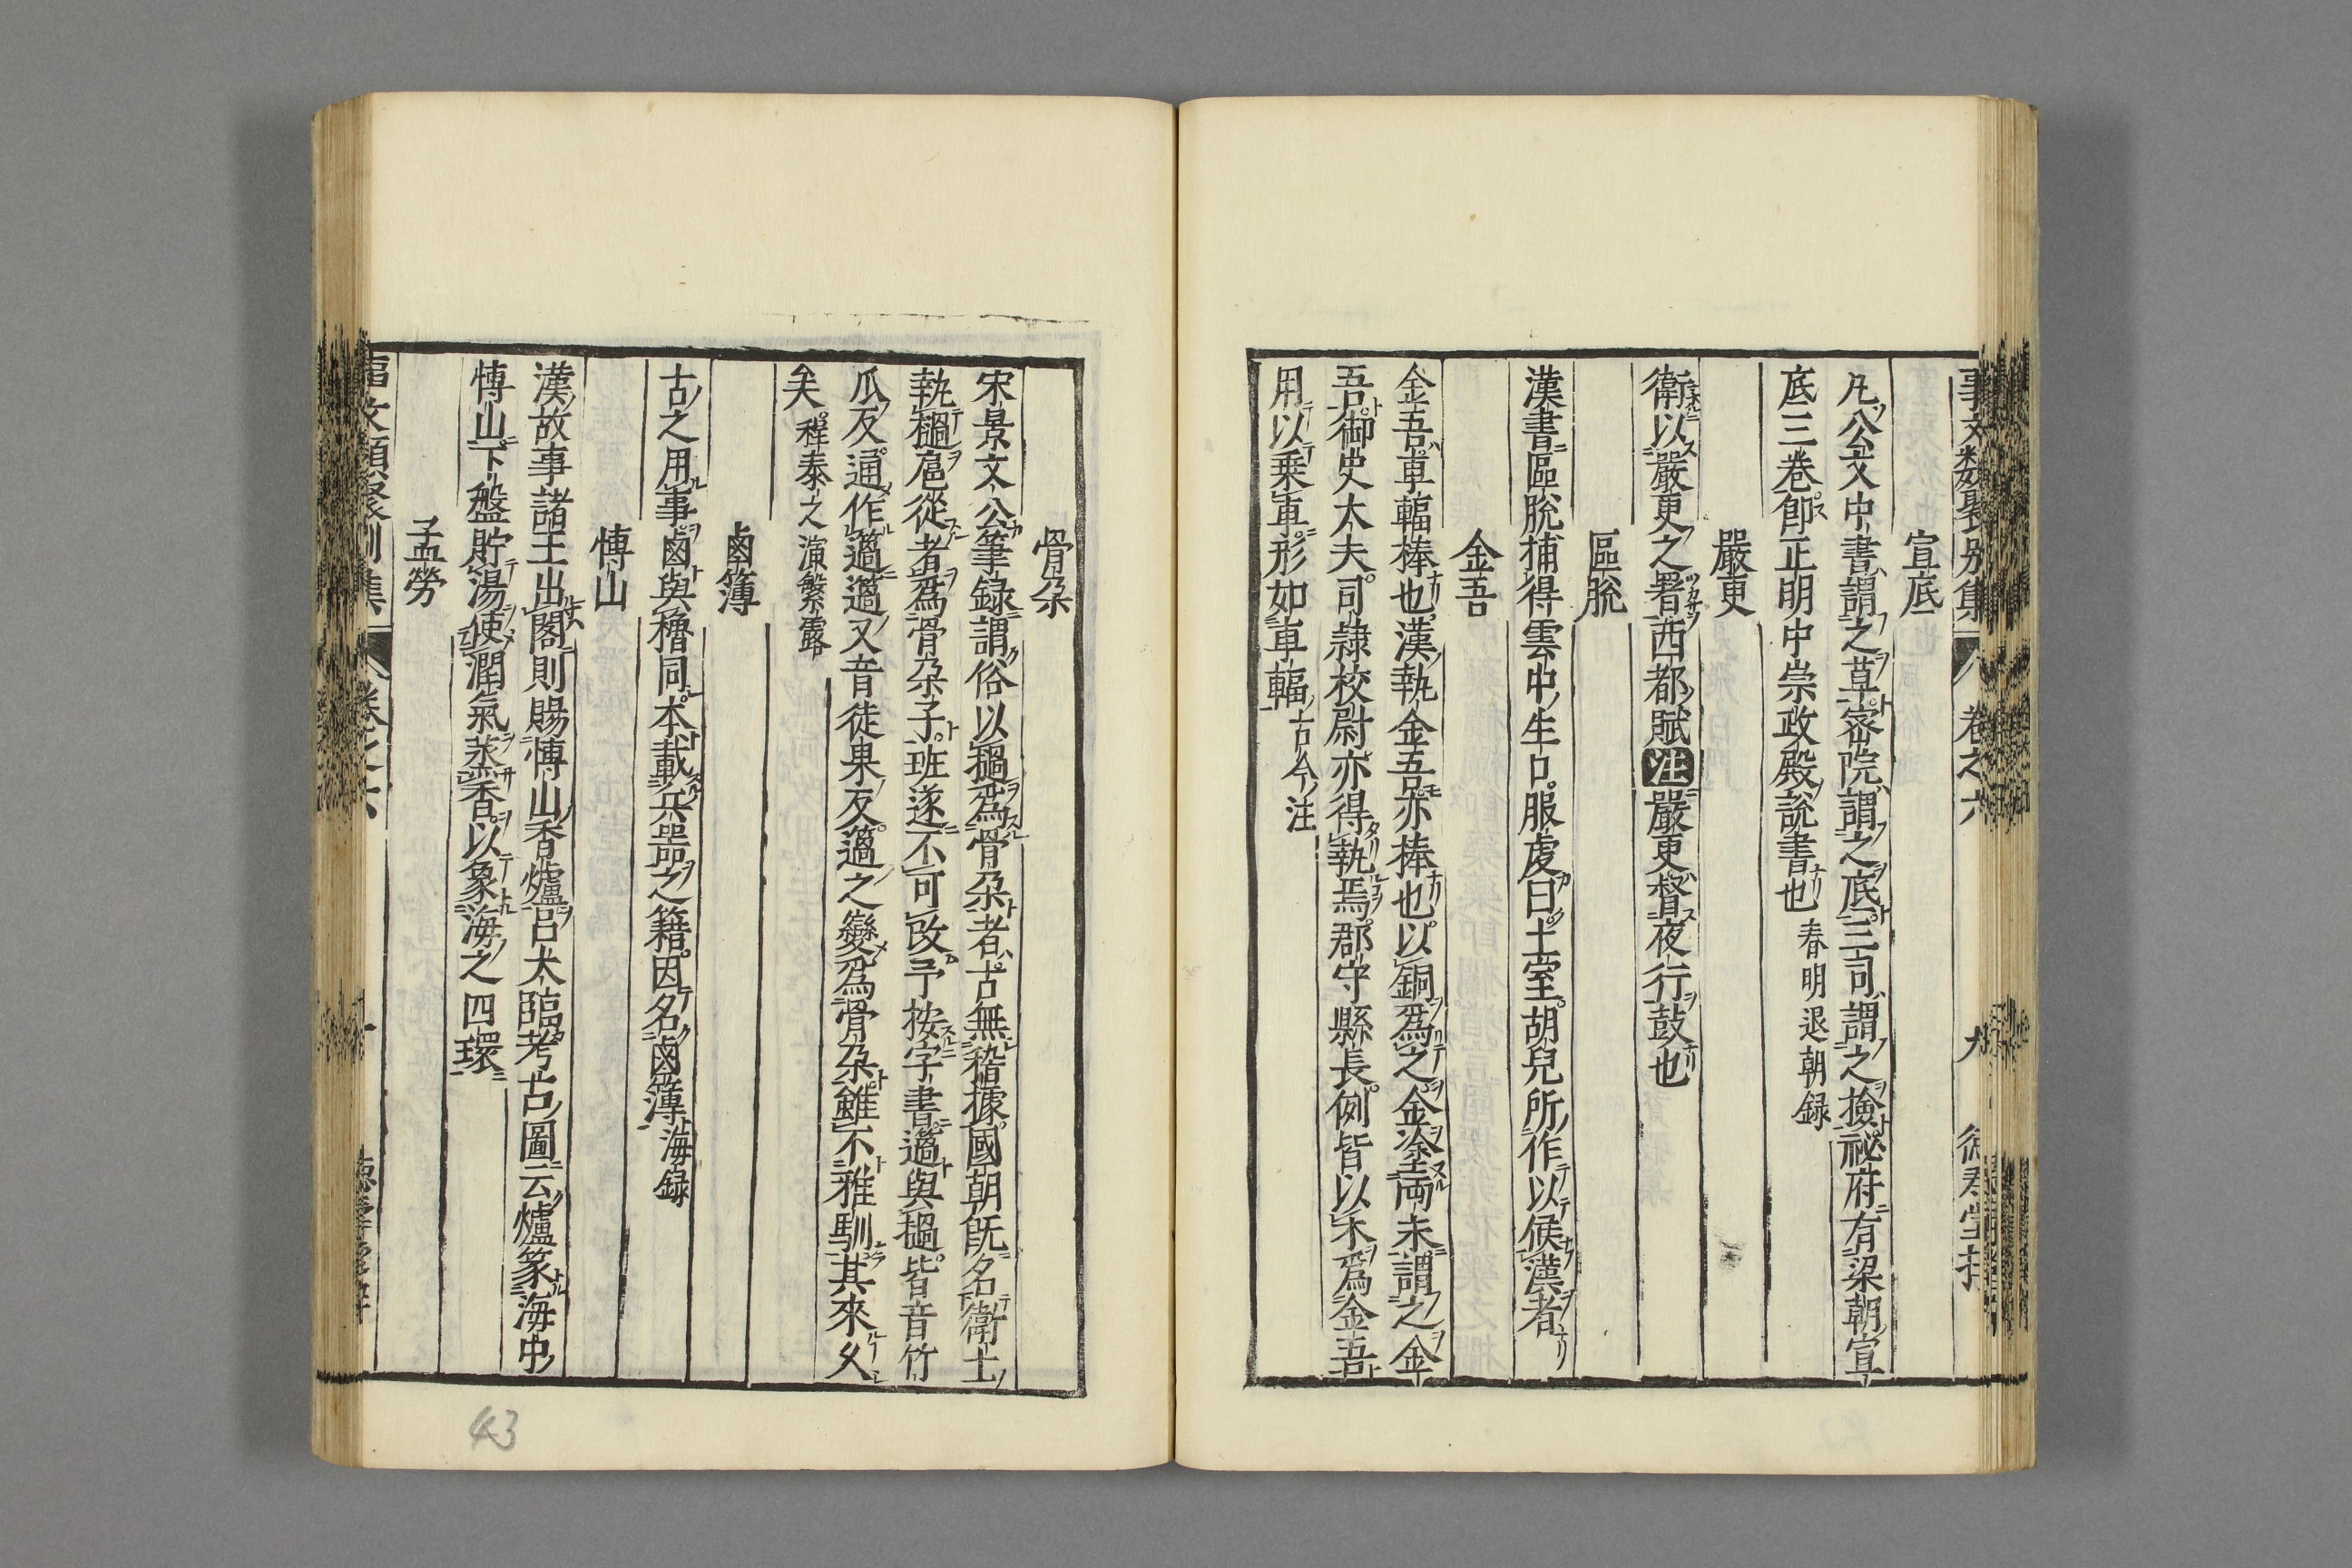 事文類聚別集 卷之六 九
宣底
凡公文中書謂之草宻院謂之底三司謂之撿祕府有梁朝宣
底三卷卽正明中崇政殿説書也 春明退朝録
嚴更
衛以嚴更之署西都賦注嚴更督夜行鼓也
區脫
漢書區脫捕得雲中生口服虔曰土室胡兒所作以候漢者
金吾
金吾車輻棒也漢執金吾亦捧也以銅爲之金塗両末謂之金
吾御史大夫司隷校尉亦得執焉郡守縣長例皆以木爲金吾
用以乗車形如車輻 古今注
骨朶
宋景文公筆録謂俗以檛爲骨朶者古無稽據國朝既名衛士
執檛扈從者爲骨朶子班遂不可改予按字書薖與檛皆音竹
瓜反通作薖薖又音徒果反薖之變爲骨朶雖不雅馴其來久
矣 程泰之演繁露
鹵簿
古之用事鹵與櫓同本載兵噐之籍因名鹵簿 海録
博山
漢故事諸王出閤則賜博山香爐吕大臨考古圖云爐象海中
博山下盤貯湯使潤氣蒸香以象海之四環
孟勞
43